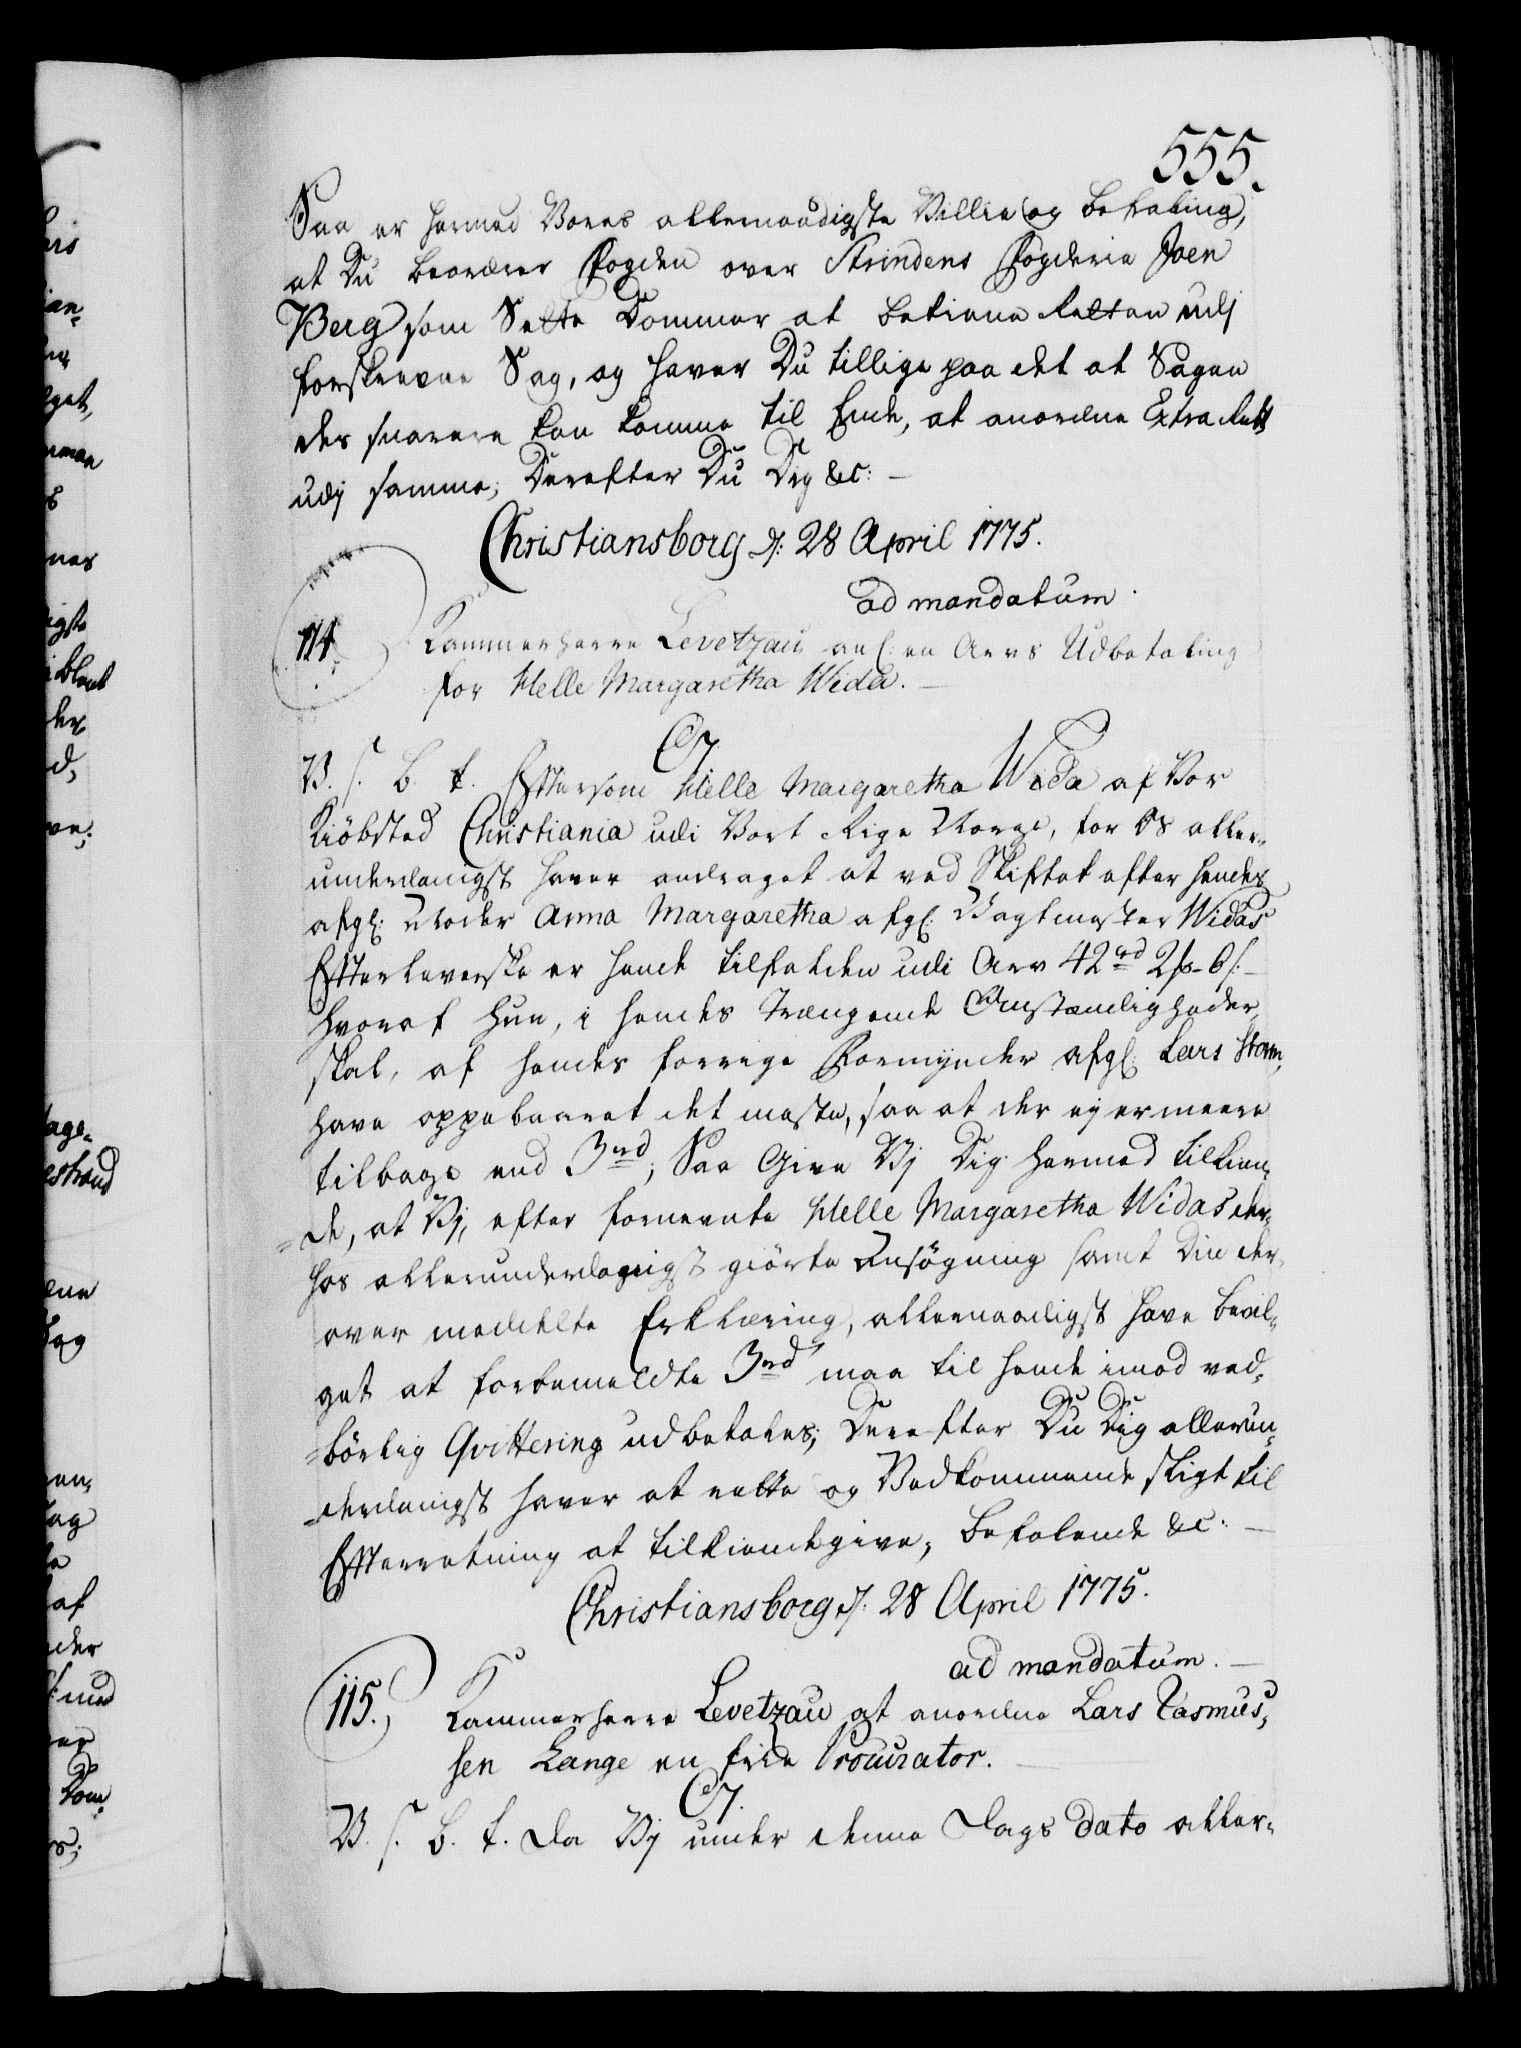 555.
Saa er hermed Vores allernaadigste Villie og befaling,
at Du beordrer Fogden over Strindens Fogderie Joen
Berg som Sette Dommer at betiene Retten udj
forskrevne Sag, og haver Du tillige paa det at Sagen
des snarere kan komme til Ende, at anordne Extra Rett
udj samme; Derefter Du Dig &c: —
Christiansborg d: 28 April 1775.
ad mandatum.
114 Kammerherre Levetzau anl: en Arvs Udbetaling
for Helle Margaretha Wida. —
C7.
V. s. G. t. Eftersom Helle Margaretha Wida af Vor
Kiöbsted Christiania udi Vort Rige Norge, for Os aller-
underdanigst haver andraget at ved Skiftet efter hendes
afgl: Moder Anna Margaretha afgl: Vagtmester Widas
Efterleverske er hende tilfalden udi Arv 42 rd 2 ß 6 s: —
hvoraf hun, i hendes trængende Omstændigheder,
skal, af hendes forrige Formynder afgl: Lars Storm,
have oppebaaret det meste, saa at der ej er meere
tilbage end 3 rd; Saa Give Vj Dig hermed tilkien-
=de, at Vj, efter fornevnte Helle Margaretha Widas der-
hos allerunderdanigst giorte Ansøgning samt Din der-
over meddelte Erklæring, allernaadigst have bevil-
get at forbemeldte 3 rd maa til hende imod ved-
=börlig Qvittering udbetales; Derefter Du Dig allerun-
=derdanigst haver at rette og Vedkommende sligt til
Efterretning at tilkiendegive, Befalende &c: —
Christiansborg d: 28 April 1775.
ad mandatum. —
115. Kammerherre Levetzau at anordne Lars Rasmus-
sen Lange en frie Procurator. —
C7.
V. s. G. t. Da Vj under denne Dags dato aller-